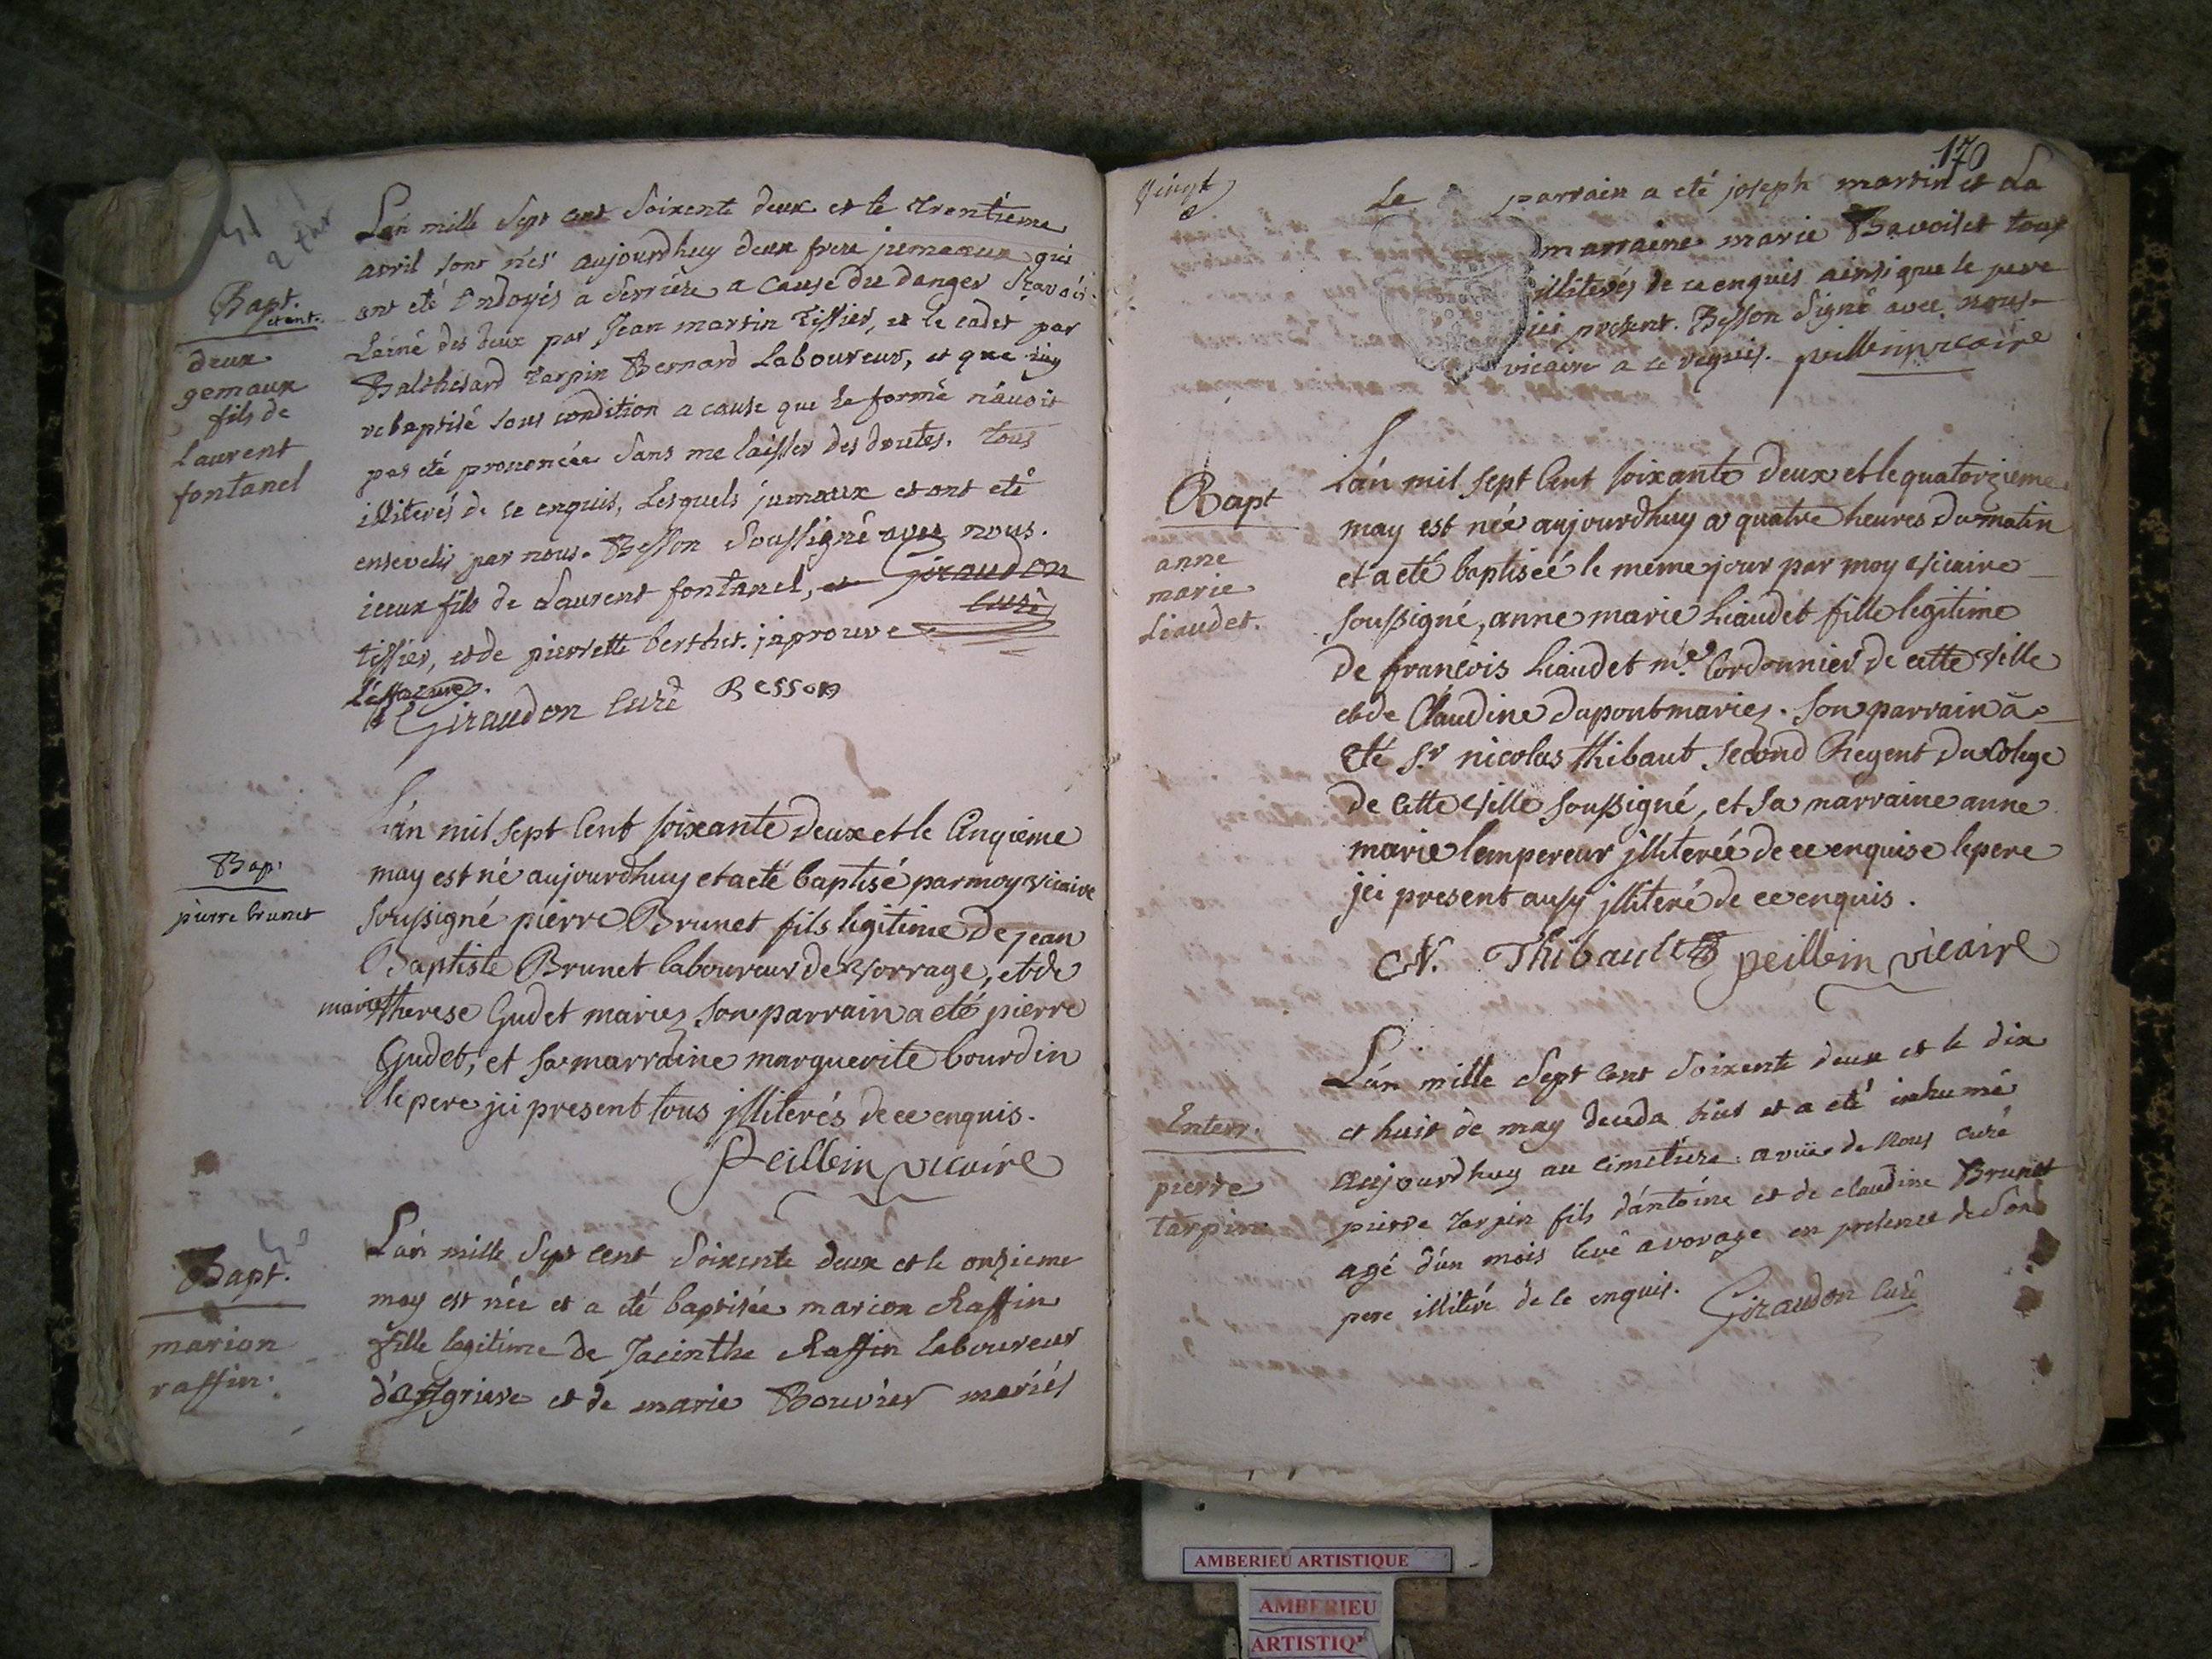 Bapt.
et ent.
deux
gemaux
fils de
Laurent
fontanel
L'an mille Sept cent Soixente deux et le trentieme
avril sont nés aujourdhuy deux frere jumeaux qui
ont eté Ondoyés a Serriére a cause du danger Scavoir
Lainé des deux par Jean martin tissier, et le cadet par
Balthesard tarpin Bernard Laboureur, et que jay
rebaptisé sous condition a cause que la forme n'avoit
pas eté prononcée sans me laisser des doutes. tous
illiterés de ce enquis, Lesquels jumaux et ont eté
ensevelis par nous. Besson Soussigné avec nous.
iceux fils de Laurent fontanel, et Giraudon
curé
tissier, et de pierrette berthet. japrouve
l'effazure.
Giraudon Curé Besson
Bap.
pierre brunet
L'an mil sept Cent soixante deux et le Cinqieme
may est né aujourdhuy et a eté baptisé par moy vicaire
soussigné pierre Brunet fils legitime de jean
Baptiste Brunet laboureur de Vorrage, et de
marie therese Gudet mariez, son parrain a eté pierre
Gudet, et sa marraine marguerite bourdin
le pere jci present tous jlliterés de ce enquis.
Peillein vicaire
Bapt.
marion
raffin.
L'an mille Sept cent Soixente deux et le onzieme
may est née et a eté baptisée marion Raffin
fille legitime de Jacinthe Raffin laboureur
et de marie Bouvier mariés
170
vingt
Le parrain a eté joseph martin et La
marraine marie Bavoilet tous
illiterés de ce enquis ainsi que le pere
ici present. Besson Signé avec nous
vicaire a ce requis. peillein vicaire
Bapt
anne
marie
Liaudet.
L'an mil sept Cent soixante deux et le quatorzieme
may est née aujourdhuy a quatre heures du matin
et a eté baptiseé le même jour par moy vicaire
soussigné, anne marie Liaudet fille legitime
de françois Liaudet me. Cordonnier de cette ville
et de Claudine dupont mariez. son parrain a
eté sr nicolas thibaut second Regent du Colege
de Cette ville soussigné, et sa marraine anne
marie lempereur jlliterée de ce enquise le pere
jci present ausy jlliteré de ce enquis.
N. Thibault peillein vicaire
Enterr.
pierre
tarpin
L'an mille Sept cent Soixente deux et le dix
et huit de may deceda hier et a eté inhumé
aujourdhuy au cimetiere a vüe de nous curé
pierre tarpin fils d'antoine et de claudine Brunet
agé d'un mois levé a vorage en presence de Son
pere illiteré de ce enquis. Giraudon Curé
AMBERIEU ARTISTIQUE
AMBERIEU
ARTISTIQ